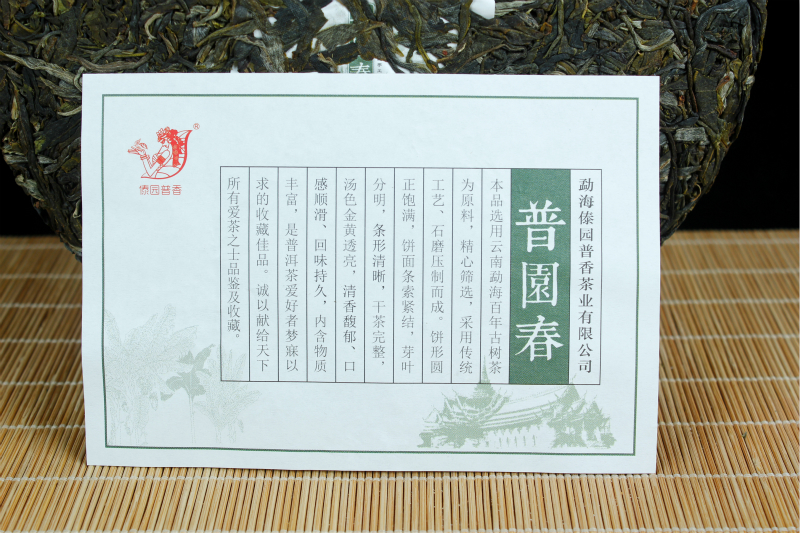 勐海傣园普香茶业有限公司
普園春
本品选用云南勐海百年古树茶
为原料，精心筛选，采用传统
工艺、石磨压制而成。饼形圆
正饱满，饼面条索紧结，芽叶
分明，条形清晰，干茶完整，
汤色金黄透亮，清香馥郁、口
感顺滑、回味持久，内含物质
丰富，是普洱茶爱好者梦寐以
求的收藏佳品。诚以献给天下
所有爱茶之士品鉴及收藏。
®
傣园普香
春